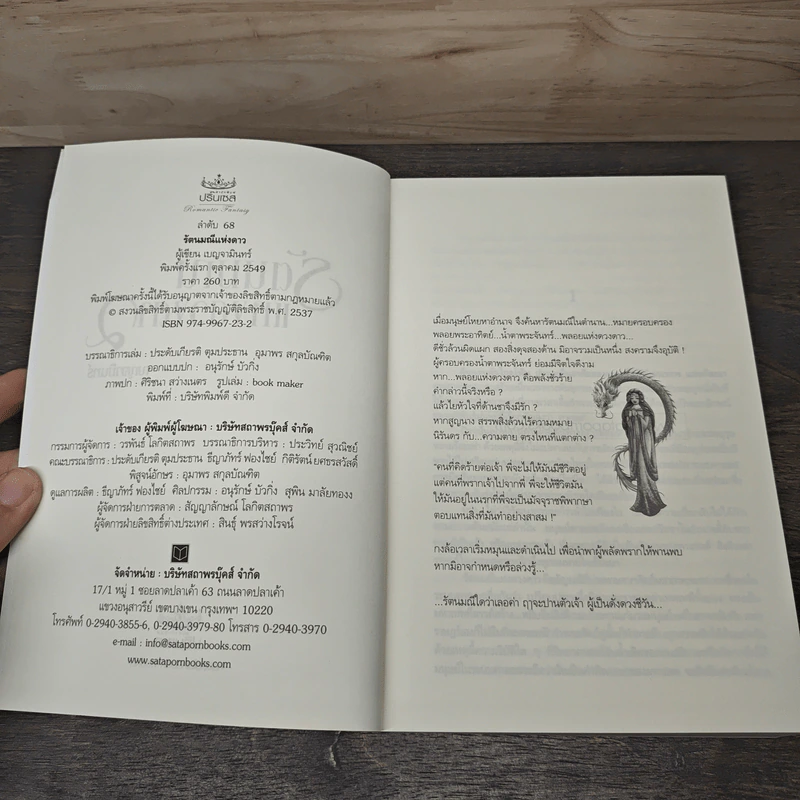 ปริ๊นเซส
Romantic Fantasy
ลำดับ 68
รัตนมณีแห่งดาว
ผู้เขียน เบญจามินทร์
พิมพ์ครั้งแรก ตุลาคม 2549
ราคา 260 บาท
พิมพ์โฆษณาครั้งนี้ได้รับอนุญาตจากเจ้าของลิขสิทธิ์ตามกฎหมายแล้ว
© สงวนลิขสิทธิ์ตามพระราชบัญญัติลิขสิทธิ์ พ.ศ. 2537
ISBN 974-9967-23-2
บรรณาธิการเล่ม : ประดับเกียรติ ตุมประธาน อุมาพร สกุลบัณฑิต
ออกแบบปก : อนุรักษ์ บัวกิ่ง
ภาพปก : ศิริชนา สว่างเนตร รูปเล่ม : book maker
พิมพ์ที่ : บริษัทพิมพ์ดี จำกัด
เจ้าของ ผู้พิมพ์ผู้โฆษณา : บริษัทสถาพรบุ๊คส์ จำกัด
กรรมการผู้จัดการ : วรพันธ์ โลกิตสถาพร บรรณาธิการบริหาร : ประวิทย์ สุวณิชย์
คณะบรรณาธิการ : ประดับเกียรติ ตุมประธาน ธีญาภัทร์ ฟองไชย์ กิติรัตน์ ยศธรสวัสดิ์
พิสูจน์อักษร : อุมาพร สกุลบัณฑิต
ดูแลการผลิต : ธีญาภัทร์ ฟองไชย์ ศิลปกรรม : อนุรักษ์ บัวกิ่ง สุพิน มาลัยทองง
ผู้จัดการฝ่ายการตลาด : สัญญาลักษณ์ โลกิตสถาพร
ผู้จัดการฝ่ายลิขสิทธิ์ต่างประเทศ : สินธุ์ พรสว่างโรจน์
จัดจำหน่าย : บริษัทสถาพรบุ๊คส์ จำกัด
17/1 หมู่ 1 ซอยลาดปลาเค้า 63 ถนนลาดปลาเค้า
แขวงอนุสาวรีย์ เขตบางเขน กรุงเทพฯ 10220
โทรศัพท์ 0-2940-3855-6, 0-2940-3979-80 โทรสาร 0-2940-3970
e-mail : info@satapornbooks.com
www.satapornbooks.com
เมื่อมนุษย์โหยหาอำนาจ จึงค้นหารัตนมณีในตำนาน...หมายครอบครอง
พลอยพระอาทิตย์...น้ำตาพระจันทร์...พลอยแห่งดวงดาว...
ดีชั่วล้วนผิดแผก สองสิ่งดุจสองด้าน มีอาจรวมเป็นหนึ่ง สงครามจึงอุบัติ !
ผู้ครอบครองน้ำตาพระจันทร์ ย่อมมีจิตใจดีงาม
หาก...พลอยแห่งดวงดาว คือพลังชั่วร้าย
คำกล่าวนี้จริงหรือ ?
แล้วไยหัวใจที่ด้านชาจึงมีรัก ?
หากสูญนาง สรรพสิ่งล้วนไร้ความหมาย
นิรันดร กับ...ความตาย ตรงไหนที่แตกต่าง ?
"คนที่คิดร้ายต่อเจ้า พี่จะไม่ให้มันมีชีวิตอยู่
แต่คนที่พรากเจ้าไปจากพี่ พี่จะให้ชีวิตมัน
ให้มันอยู่ในนรกที่พี่จะเป็นมัจจุราชพิพากษา
ตอบแทนสิ่งที่มันทำอย่างสาสม !"
กงล้อเวลาเริ่มหมุนและดำเนินไป เพื่อนำพาผู้พลัดพรากให้พานพบ
หากมิอาจกำหนดหรือล่วงรู้...
...รัตนมณีใดว่าเลอค่า ฤๅจะปานตัวเจ้า ผู้เป็นดั่งดวงชีวัน...